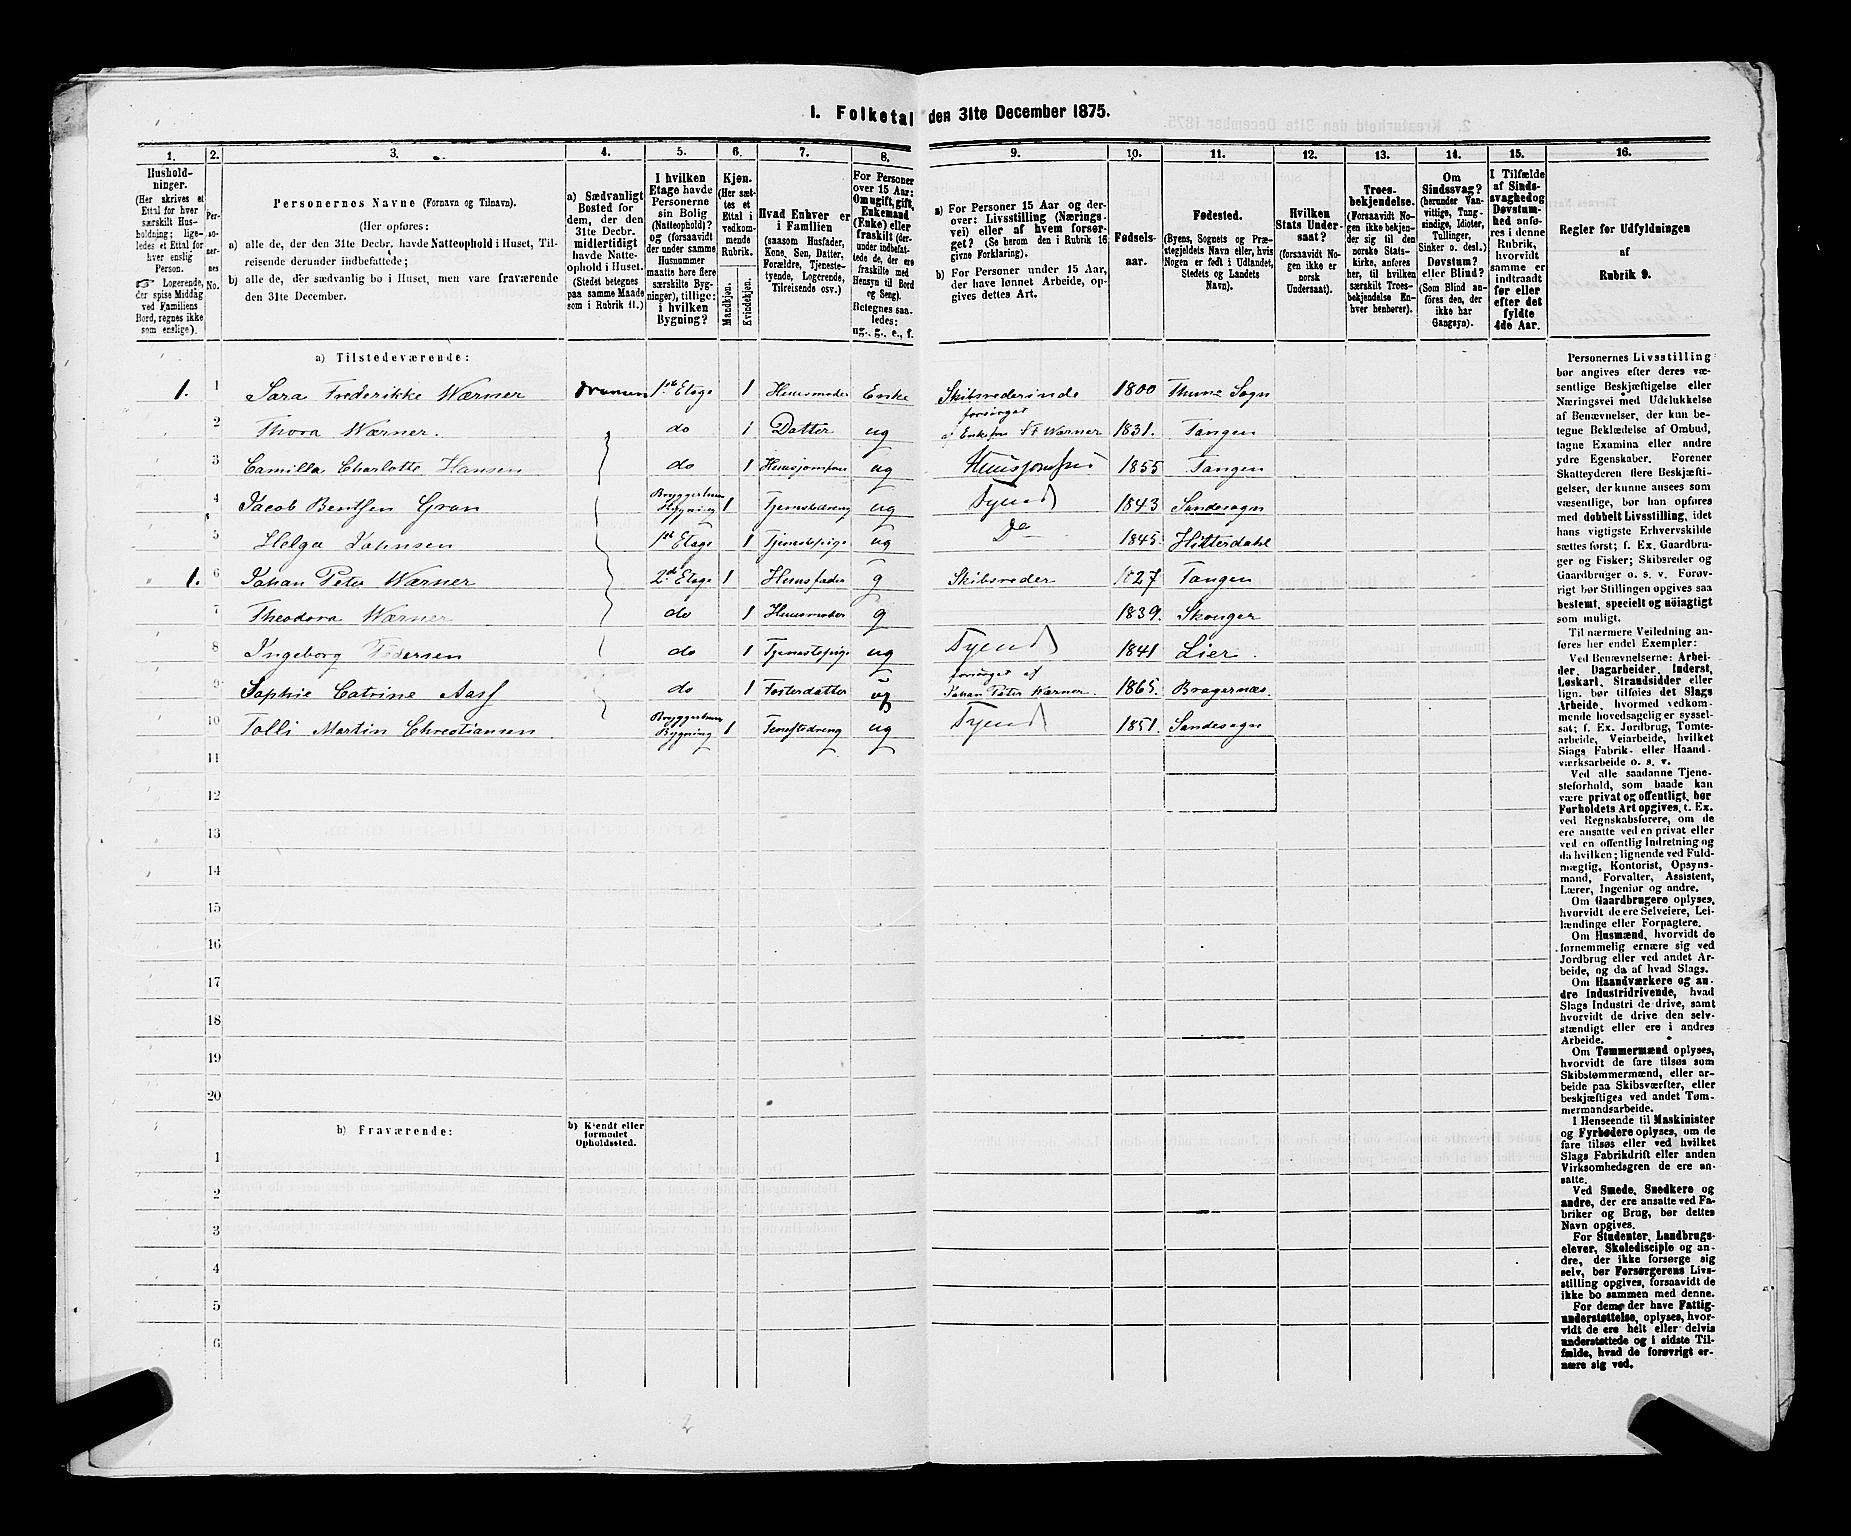 1. Folketal den 31te December 1875.
1.
Hushold-
ninger.
(Her skrives et
Ettal for hver
særskilt Hus-
holdning; lige-
ledes et Ettal for
hver enslig
Person.
Logerende,
der spise Middag
ved Familiens
Bord, regnes ikke
som enslige).
2.
Per-
so-
ner-
nes
No.
3.
Personernes Navne (Fornavn og Tilnavn).
(Her opføres:
a) alle de, der den 31te Decbr. havde Natteophold i Huset, Til-
reisende derunder indbefattede;
b) alle de, der sædvanlig bo i Huset, men vare fraværende
den 31te December.
4.
a) Sædvanligt
Bosted for
dem, der den
31te Decbr.
midlertidigt
havde Natte-
ophold i Huset.
(Stedet betegnes
paa samme Maade
som i Rubrik 11.)
5.
I hvilken
Etage havde
Personerne
sin Bolig
(Natteophold)?
og (forsaavidt
der under samme
Husnummer
maatte høre flere
særskilte Byg-
ninger), tillige:
i hvilken
Bygning?
6.
Kjøn.
(Her sæt-
tes et
Ettal i
vedkom-
mende
Rubrik.
Mandkjøn.
Kvindekjøn.
7.
Hvad Enhver er
i Familien
(saasom Husfader,
Kone, Søn, Datter,
Forældre, Tjeneste-
tyende, Logerende,
Tilreisende osv.)
8.
For Personer
over 15 Aar:
Om ugift, gift,
Enkemand
(Enke) eller
fraskilt (der-
under indbefat-
tede de, der ere
fraskilte med
Hensyn til Bord
og Seng).
Betegnes saa-
ledes:
ug., g., e., f.
9.
a) For Personer 15 Aar og der-
over: Livsstilling (Nærings-
vei) eller af hvem forsør-
get? (Se herom den i Rubrik 16
givne Forklaring).
b) For Personer under 15 Aar,
der have lønnet Arbeide, op-
gives dettes Art.
10.
Fødsels-
aar.
11.
Fødested.
(Byens, Sognets og Præ-
stegjeldets Navn eller, hvis
Nogen er født i Udlandet,
Stedets og Landets
Navn).
12.
Hvilken
Stats Under-
saat?
(forsaavidt No-
gen ikke er
norsk
Undersaat).
13.
Troes-
bekjendelse.
(Forsaavidt No-
gen ikke bekjen-
der sig til den
norske Stats-
kirke, anføres
her, til hvilken
særskilt Troes-
bekjendelse En-
hver henhører).
14.
Om
Sindssvag?
(herunder Van-
vittige, Tung-
sindige, Idioter,
Tullinger,
Sinker o. desl.)
Døvstum?
eller Blind?
(Som Blind an-
føres den, der
ikke har
Gangsyn).
15.
I Tilfælde
af Sinds-
svaghed og
Døvstum-
hed anfø-
res i denne
Rubrik,
hvorvidt
samme er
indtraadt
før eller
efter det
fyldte
4de Aar.
16.
Regler for Udfyldningen
af
Rubrik 9.
a) Tilstedeværende:
1. 1 Sara Frederikke Wærner Dramen 1ste Etage 1 Huusmoder Enke Skibsrederinde 1800 Sogn
2 Thora Wærner. do 1 Datter ug forsørget af Enkefru Wærner 1831. Tangen
3 Camilla Charlotte Hansen do 1 Huusjomfru ug Huusjomfru 1855 Tangen
4 Jacob Bentsen Gran Bryggerhuus Bygning 1 Tjenstedreng ug Tyend 1843 Sandesogn
5 Helga Johnsen 1ste Etage 1 Tjenstepige ug Do 1845. Hitterdahl
1. 6 Johan Peter Wærner 2de Etage 1 Huusfader g Skibsreder 1827 Tangen
7 Theodora Wærner do 1 Huusmoder g 1839. Skouger
8 Ingeborg Pedersen do 1 Tjenestepige ug Tyend 1841 Lier.
9 Sophie Catrine Aass do 1 Fosterdatter ug forsørget af Johan Peter Wærner. 1865. Bragernæs.
10 Tolli Martin Christiansen Bryggerhuus Bygning 1 Tjenstedreng ug Tyend 1851. Sandesogn
11
12
13
14
15
16
17
18
19
20
b) Fraværende:
b) Kjendt eller
formodet
Opholdssted.
1
2
3
4
5
6
2
Personernes Livsstilling
bør angives efter deres væ-
sentlige Beskjæftigelse eller
Næringsvei med Udelukkelse
af Benævnelser, der kun be-
tegne Beklædelse af Ombud,
tagne Examina eller andre
ydre Egenskaber. Forener
Skatteyderen flere Beskjæfti-
gelser, der kunne ansees som
væsentlige, bør han opføres
med dobbelt Livsstilling, idet
hans vigtigste Erhvervskilde
sættes først; f. Ex. Gaardbru-
ger og Fisker; Skibsreder og
Gaardbruger o. s. v. Forøv-
rigt bør Stillingen opgives saa
bestemt, specielt og nöiagtigt
som muligt.
Til nærmere Veiledning an-
føres her endel Exempler:
Ved Benævnelserne: Arbei-
der, Dagarbeider, Inderst,
Løskarl, Strandsidder eller
lign. bør tilføies det Slags
Arbeide, hvormed vedkom-
mende hovedsagelig er syssel-
sat; f. Ex. Jordbrug, Tomte-
arbeide, Veiarbeide, hvilket
Slags Fabrik- eller Haand-
værksarbeide o. s. v.
Ved alle saadanne Tjene-
steforhold, som baade kan
være privat og offentligt, bør
Forholdets Art opgives, t. Ex.
ved Regnskabsførere, om de
ere ansatte ved en privat eller
ved en offentlig Indretning og
da hvilken; lignende ved Fuld-
mægtig, Kontorist, Opsyns-
mand, Forvalter, Assistent,
Lærer, Ingeniør og andre.
Om Gaardbrugere oplyses,
hvorvidt de ere Selveiere, Lei-
lændinge eller Forpagtere.
Om Husmænd, hvorvidt de
fornemmelig ernære sig ved
Jordbrug eller ved andet Ar-
beide, og da af hvad Slags.
Om Haandværkere og an-
dre Industridrivende, hvad
Slags Industri de drive, samt
hvorvidt de drive den selv-
stændigt eller ere i andres
Arbeide.
Om Tømmermænd oplyses,
hvorvidt de fare tilsøs som
Skibstømmermænd, eller ar-
beide paa Skibsværfter, eller
beskjæftiges ved andet Tøm-
mermandsarbeide.
I Henseende til Maskinister
og Fyrbødere oplyses, om de
fare tilsøs eller ved hvilket
Slags Fabrikdrift eller anden
Virksomhedsgren de ere an-
satte.
Ved Smede, Snedkere og
andre, der ere ansatte ved Fa-
briker og Brug, bør dettes
Navn opgives.
For Studenter, Landbrugs-
elever, Skoledisciple og an-
dre, der ikke forsørge sig
selv, bør Forsørgerens Livs-
stilling opgives, forsaavidt de
ikke bo sammen med denne.
For dem, der have Fattig-
understøttelse, oplyses, hvor-
vidt de ere helt eller delvis
understøttede og i sidste Til-
fælde, hvad de forøvrigt er-
nære sig ved.